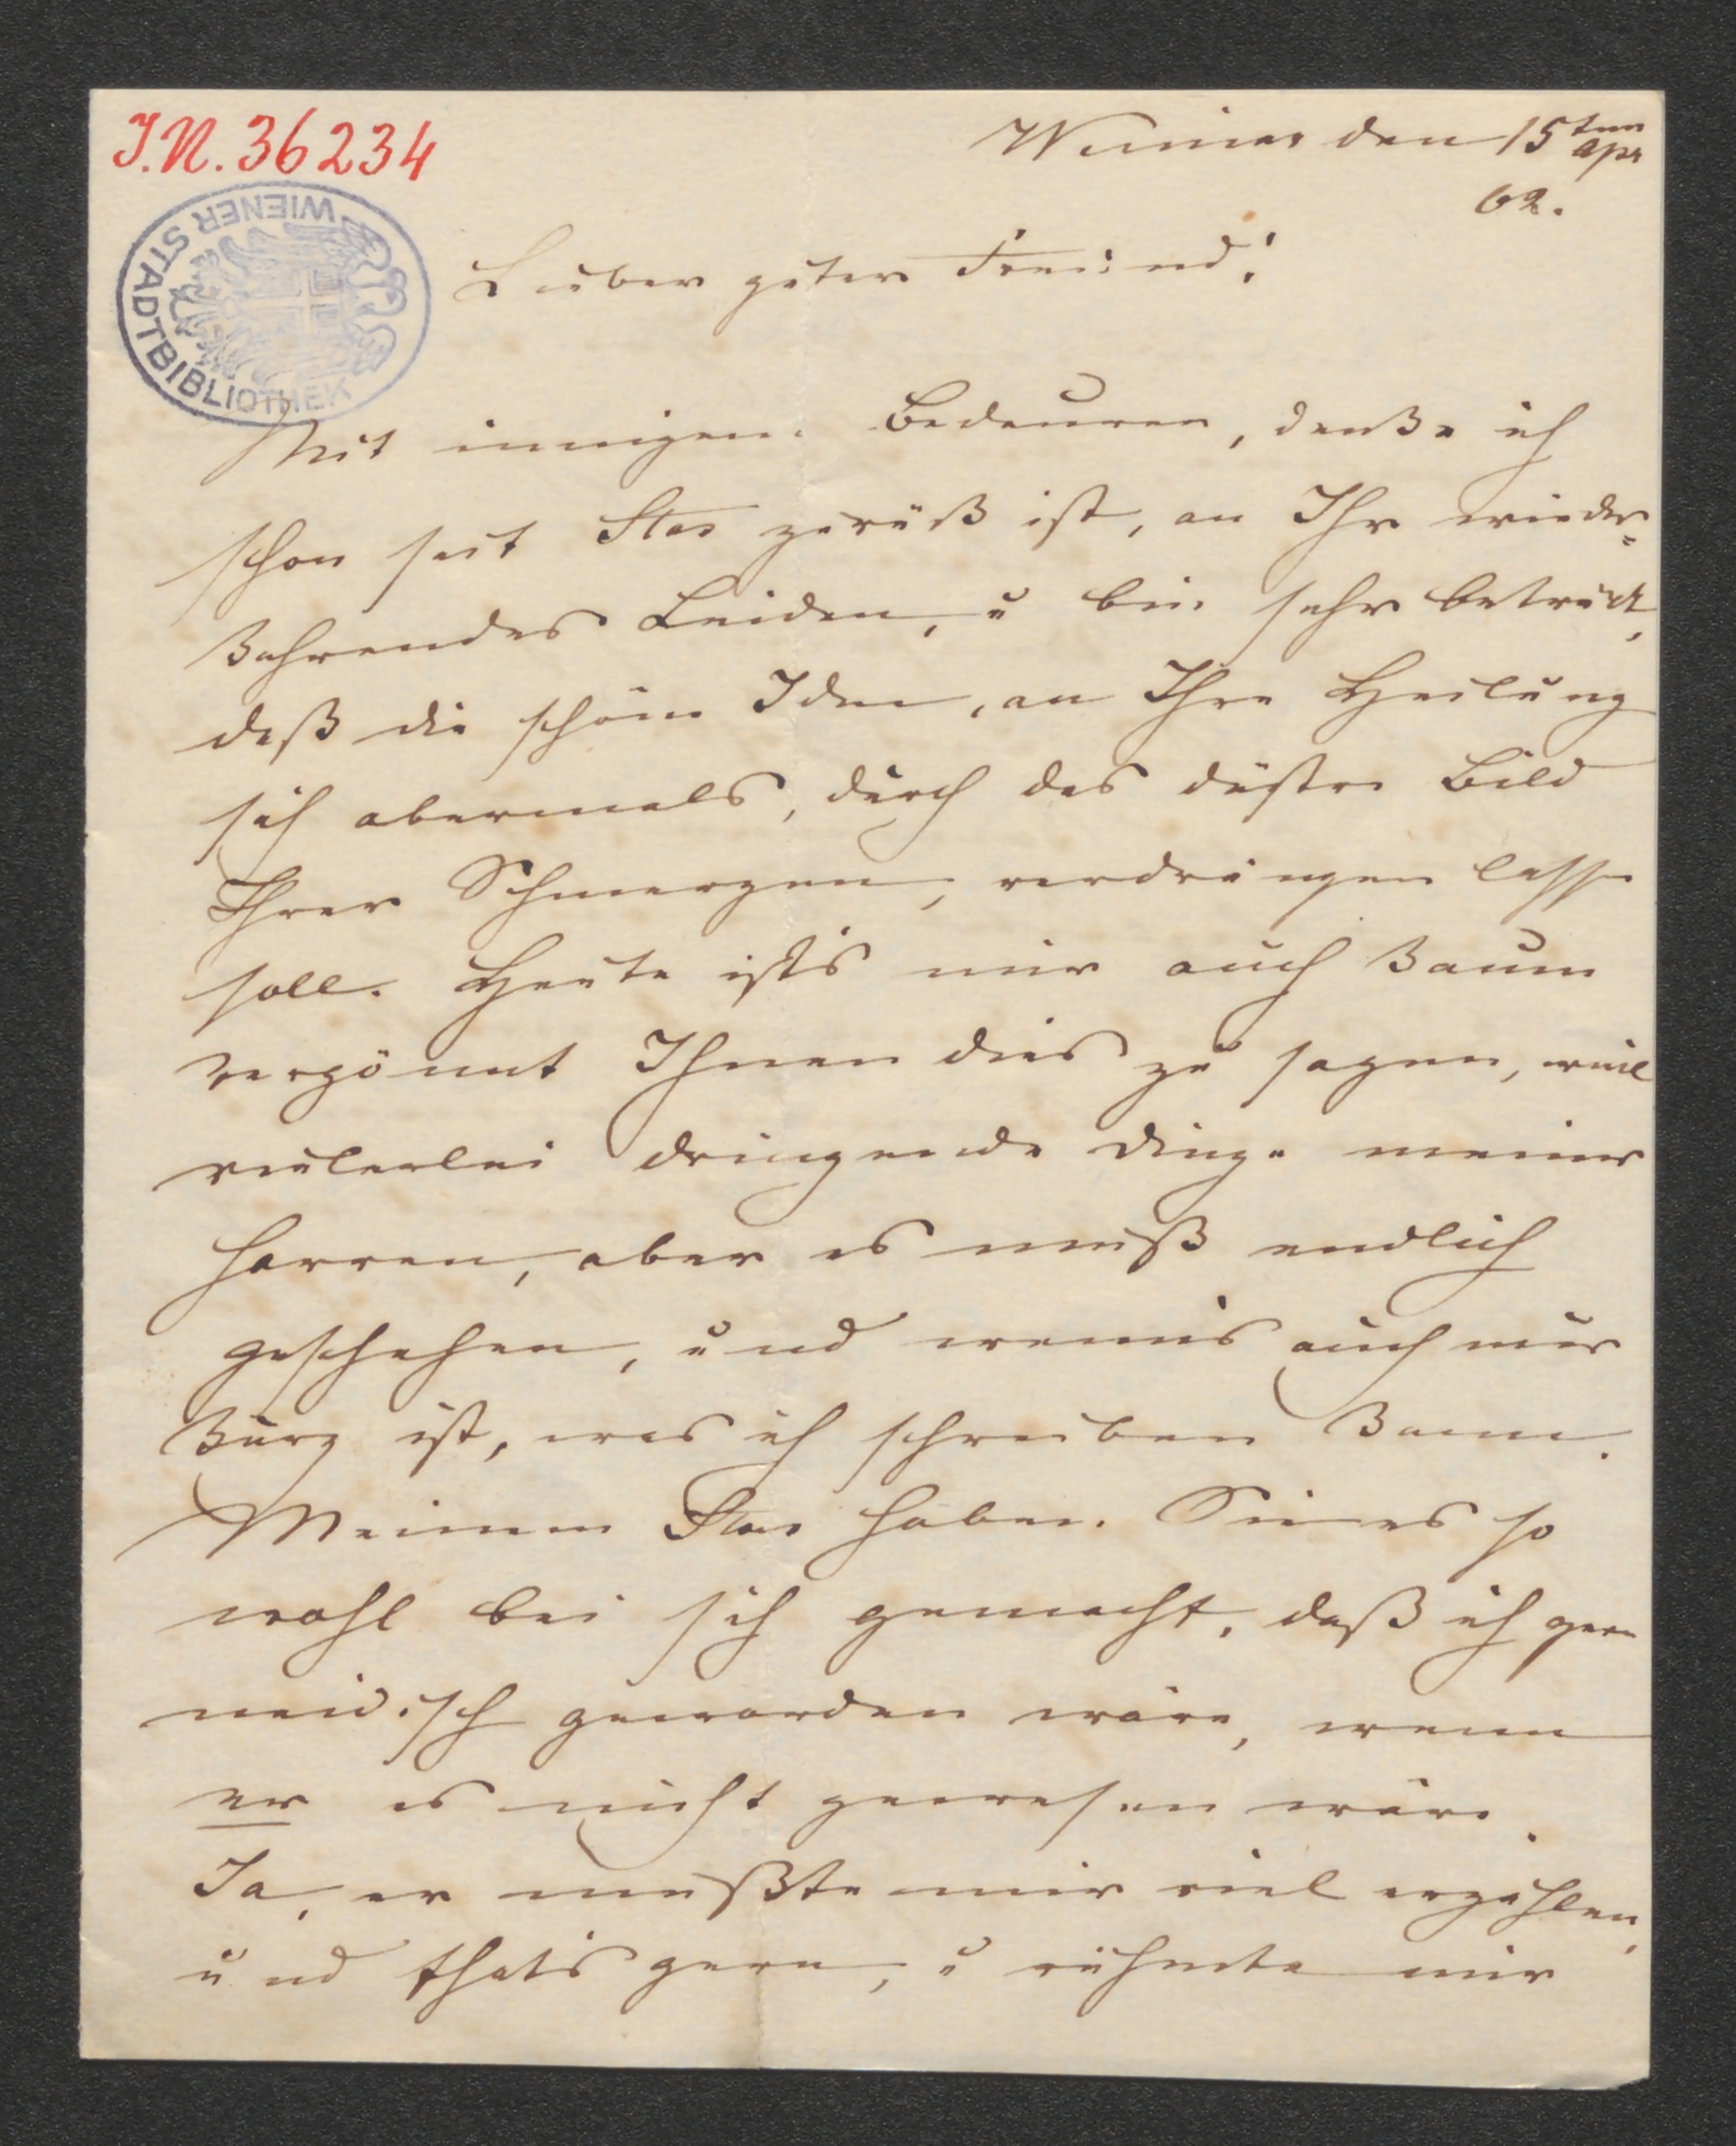 I.N. 36234
WIENER STADTBIBLIOTHEK
Weimar den 15ten Apr
62.
Lieber guter Freund!
Mit innigem Bedauern, denke ich
schon seit Stas zurük ist, an Ihr wieder=
kehrendes Leiden, u bin sehr betrübt,
daß die schöne Idee, an Ihre Heilung
sich abermals, durch das düstre Bild
Ihrer Schmerzen, verdrängen lassen
soll. Heute ist's mir auch kaum
vergönnt Ihnen dies zu sagen, weil
vielerlei dringende Dinge meiner
harren, aber es muß endlich
geschehen, und wenn's auch nur
kurz ist, was ich schreiben kann.
Meinem Stas haben Sie es so
wohl bei sich gemacht, daß ich gern
neidisch geworden wäre, wenn
er es nicht gewesen wäre.
Ja, er mußte mir viel erzählen,
und that's gern, u rühmte mir